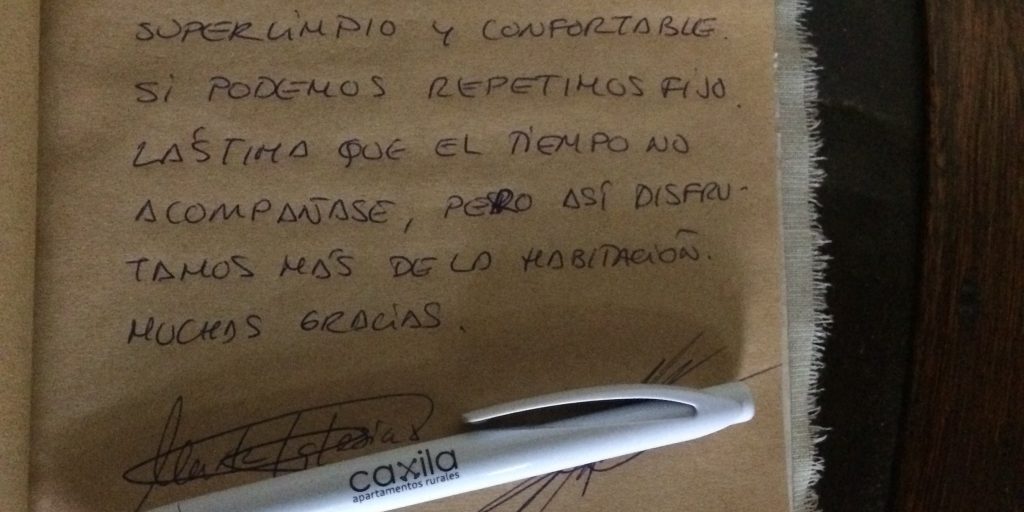 SUPERLIMPIO Y CONFORTABLE.
SI PODEMOS REPETIMOS FIJO.
LÁSTIMA QUE EL TIEMPO NO
ACOMPAÑASE, PERO ASÍ DISFRU-
TAMOS MÁS DE LA HABITACIÓN.
MUCHAS GRACIAS.
Iglesias
caxila
apartamentos rurales